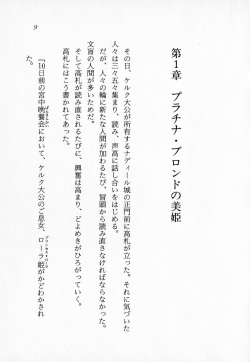 9
第1章　プラチナ・ブロンドの美姫
その日、ケルク大公が所有するナディール城の正門前に高札が立った。それに気づいた
人々は三々五々集まり、読み、声高に話し合いをはじめる。
だが、人々の輪に新たな人間が加わるたび、冒頭から読み直さなければならなかった。
文盲の人間が多いためだ。
そして高札が読み直されるたびに、興奮は高まり、どよめきがひろがっていく。
高札にはこう書かれてあった。
『10日前の宮中晩餐会において、ケルク大公のご息女、ローラ姫がかどわかされ
た。